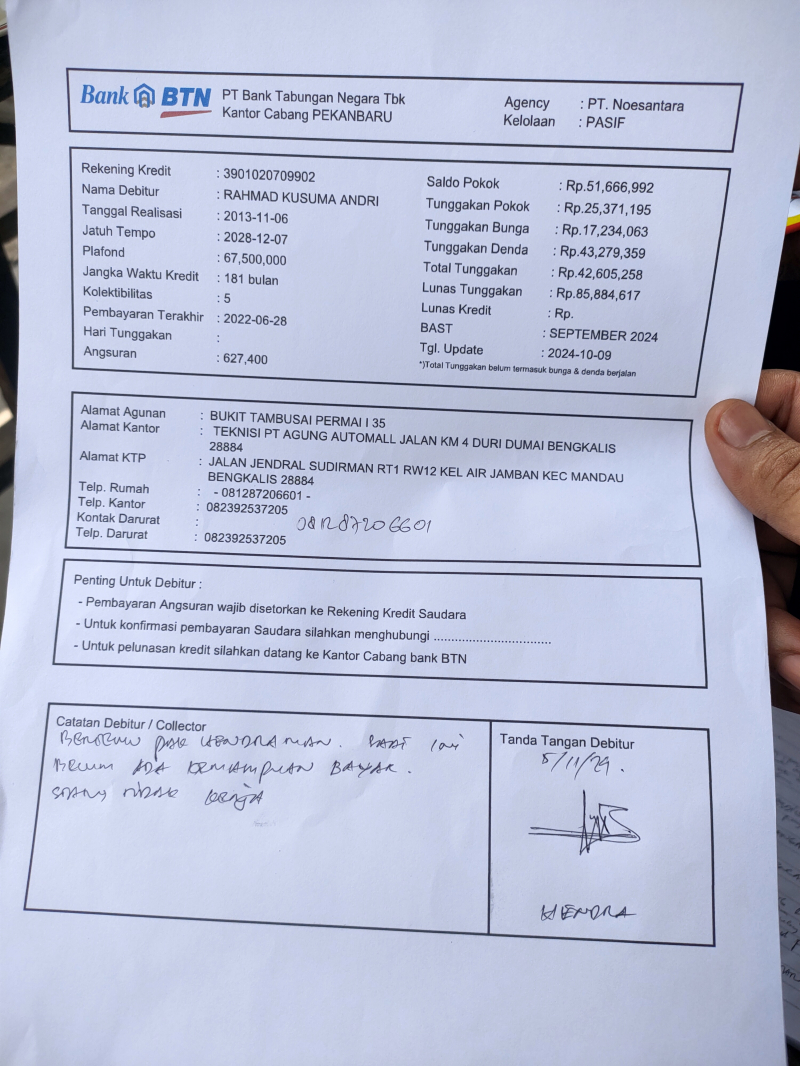 Bank BTN PT Bank Tabungan Negara Tbk
Kantor Cabang PEKANBARU
Agency : PT. Noesantara
Kelolaan : PASIF
Rekening Kredit : 3901020709902
Nama Debitur : RAHMAD KUSUMA ANDRI
Tanggal Realisasi : 2013-11-06
Jatuh Tempo : 2028-12-07
Plafond : 67,500,000
Jangka Waktu Kredit : 181 bulan
Kolektibilitas : 5
Pembayaran Terakhir : 2022-06-28
Hari Tunggakan :
Angsuran : 627,400
Saldo Pokok : Rp.51,666,992
Tunggakan Pokok : Rp.25,371,195
Tunggakan Bunga : Rp.17,234,063
Tunggakan Denda : Rp.43,279,359
Total Tunggakan : Rp.42,605,258
Lunas Tunggakan : Rp.85,884,617
Lunas Kredit : Rp.
BAST : SEPTEMBER 2024
Tgl. Update : 2024-10-09
*)Total Tunggakan belum termasuk bunga & denda berjalan
Alamat Agunan : BUKIT TAMBUSAI PERMAI I 35
Alamat Kantor : TEKNISI PT AGUNG AUTOMALL JALAN KM 4 DURI DUMAI BENGKALIS
28884
Alamat KTP : JALAN JENDRAL SUDIRMAN RT1 RW12 KEL AIR JAMBAN KEC MANDAU
BENGKALIS 28884
Telp. Rumah : - 081287206601 -
Telp. Kantor : 082392537205
Kontak Darurat : 081287206601
Telp. Darurat : 082392537205
Penting Untuk Debitur :
- Pembayaran Angsuran wajib disetorkan ke Rekening Kredit Saudara
- Untuk konfirmasi pembayaran Saudara silahkan menghubungi ................................
- Untuk pelunasan kredit silahkan datang ke Kantor Cabang bank BTN
Catatan Debitur / Collector
BERTEMU PAK HENDRAMAN. SAAT INI
BELUM ADA KEMAMPUAN BAYAR.
tiDAK KERJA
Tanda Tangan Debitur
5/11/24.
HENDRA